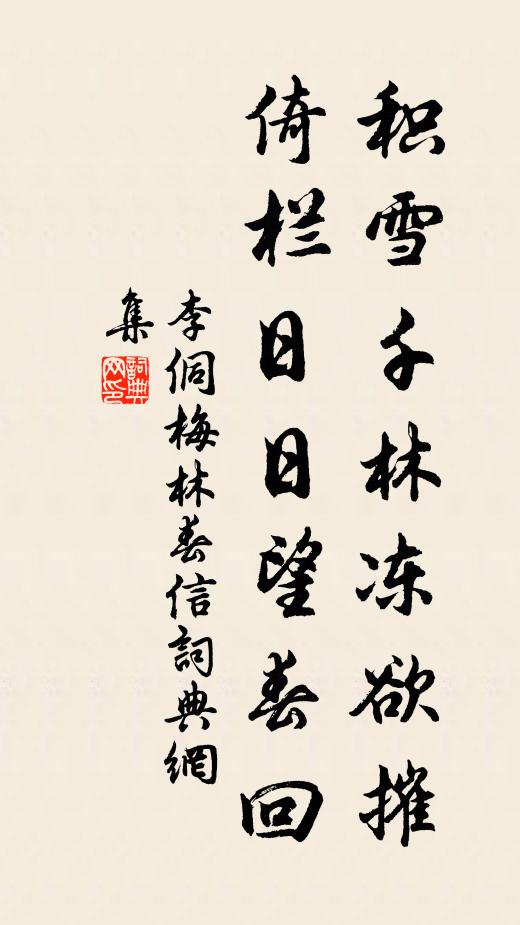 积雪千林冻欲摧
倚栏日日望春回
李侗梅林春信詞典網
集
詞典网印